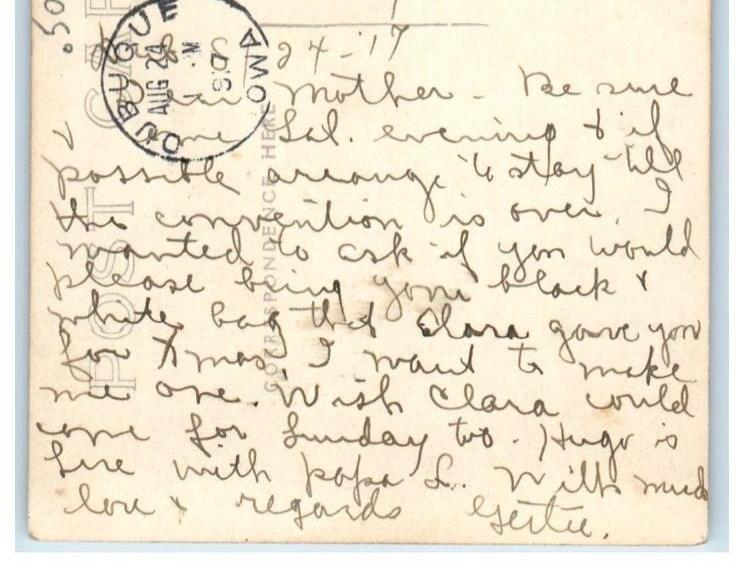 .50
DUBUQUE IOWA
AUG 24
1917
POST CARD
CORRESPONDENCE HERE
24-'17
Dear Mother - Be sure
come Sat. evening & if
possible arrange to stay till
the convention is over. I
wanted to ask if you would
please bring your black &
white bag that Clara gave you
for Xmas, I want to make
me one. Wish Clara could
come for Sunday too. Hugo is
here with papa L. With much
love & regards Gertie.